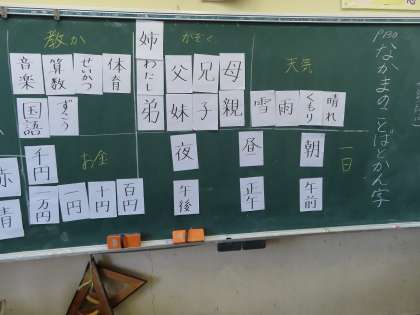 P130
なかまのことばとかん字
天気
晴れ
くもり
雨
雪
一日
朝
昼
夜
午前
正午
午後
かぞく
姉
母
兄
父
わたし
親
子
妹
弟
教か
体育
せいかつ
算数
音楽
ずこう
国語
お金
千円
百円
十円
一円
一万円
赤
青